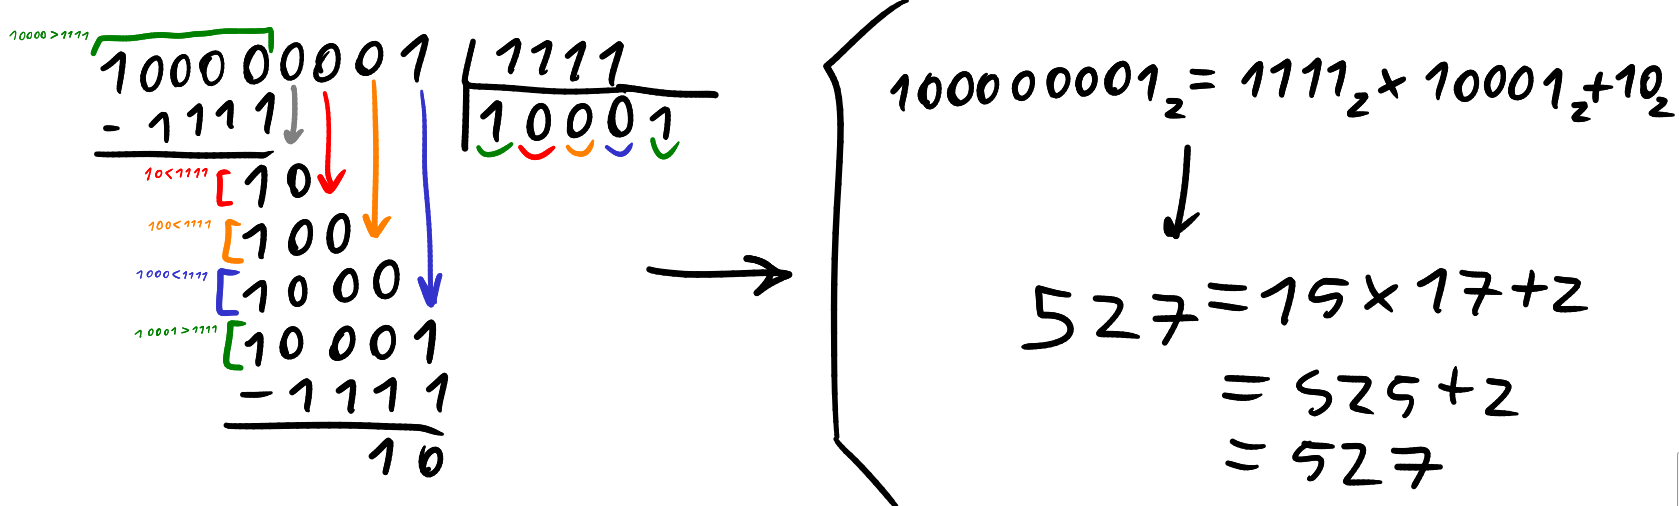 10000>1111
100000001 1111
- 1111 10001
10<1111 10
100<1111 100
1000<1111 1000
10001>1111 10001
- 1111
10
100000001₂ = 1111₂ × 10001₂ + 10₂
527 = 15 × 17 + 2
= 525 + 2
= 527